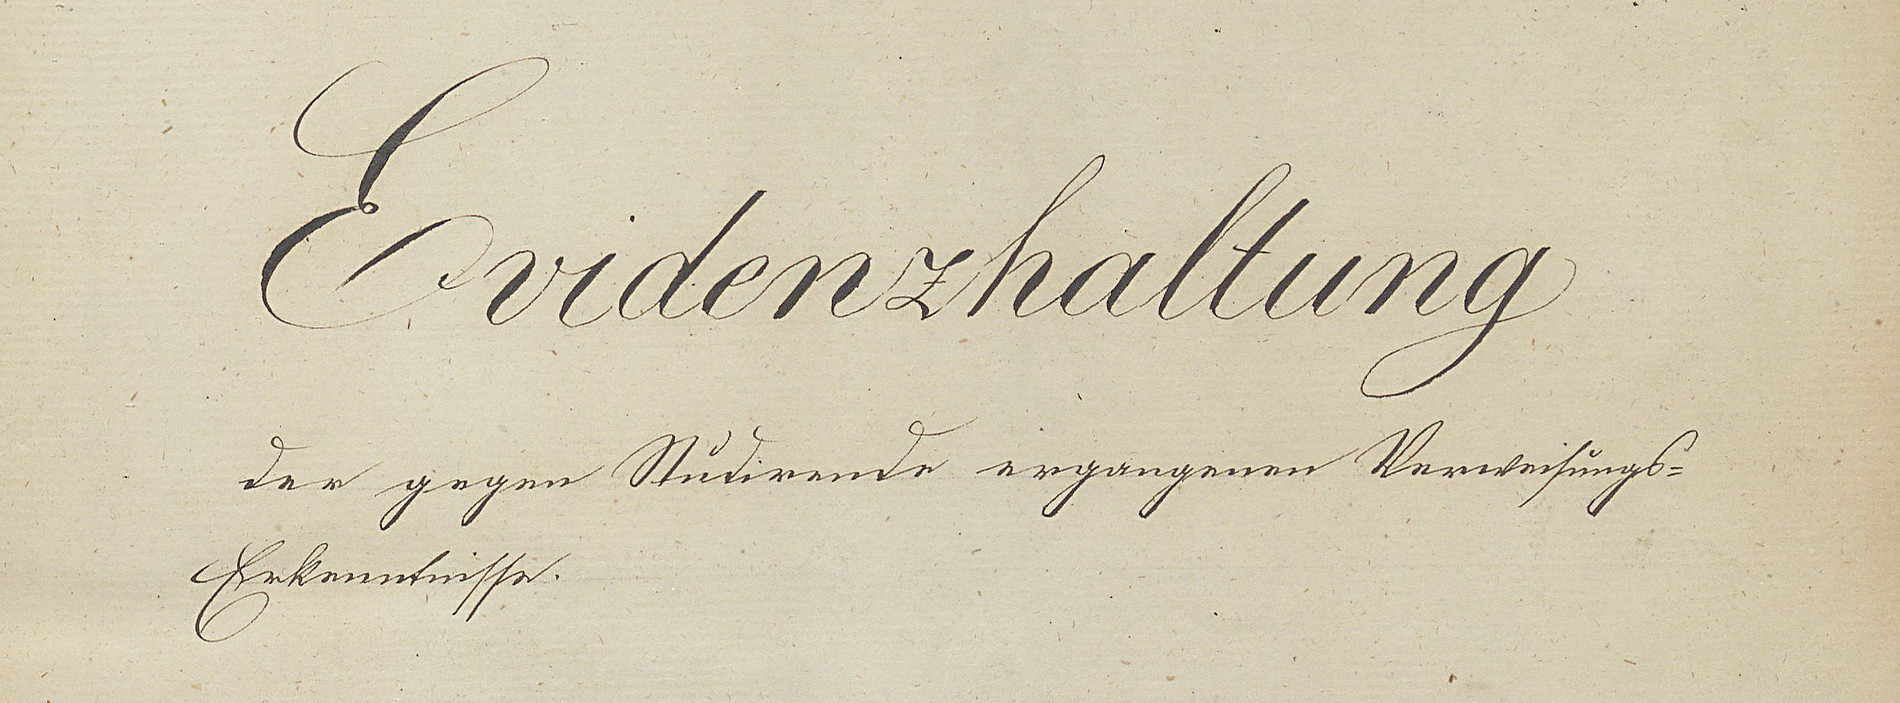 Evidenzhaltung
der gegen Studirende ergangenen Verweisungs=
Erkenntnisse.